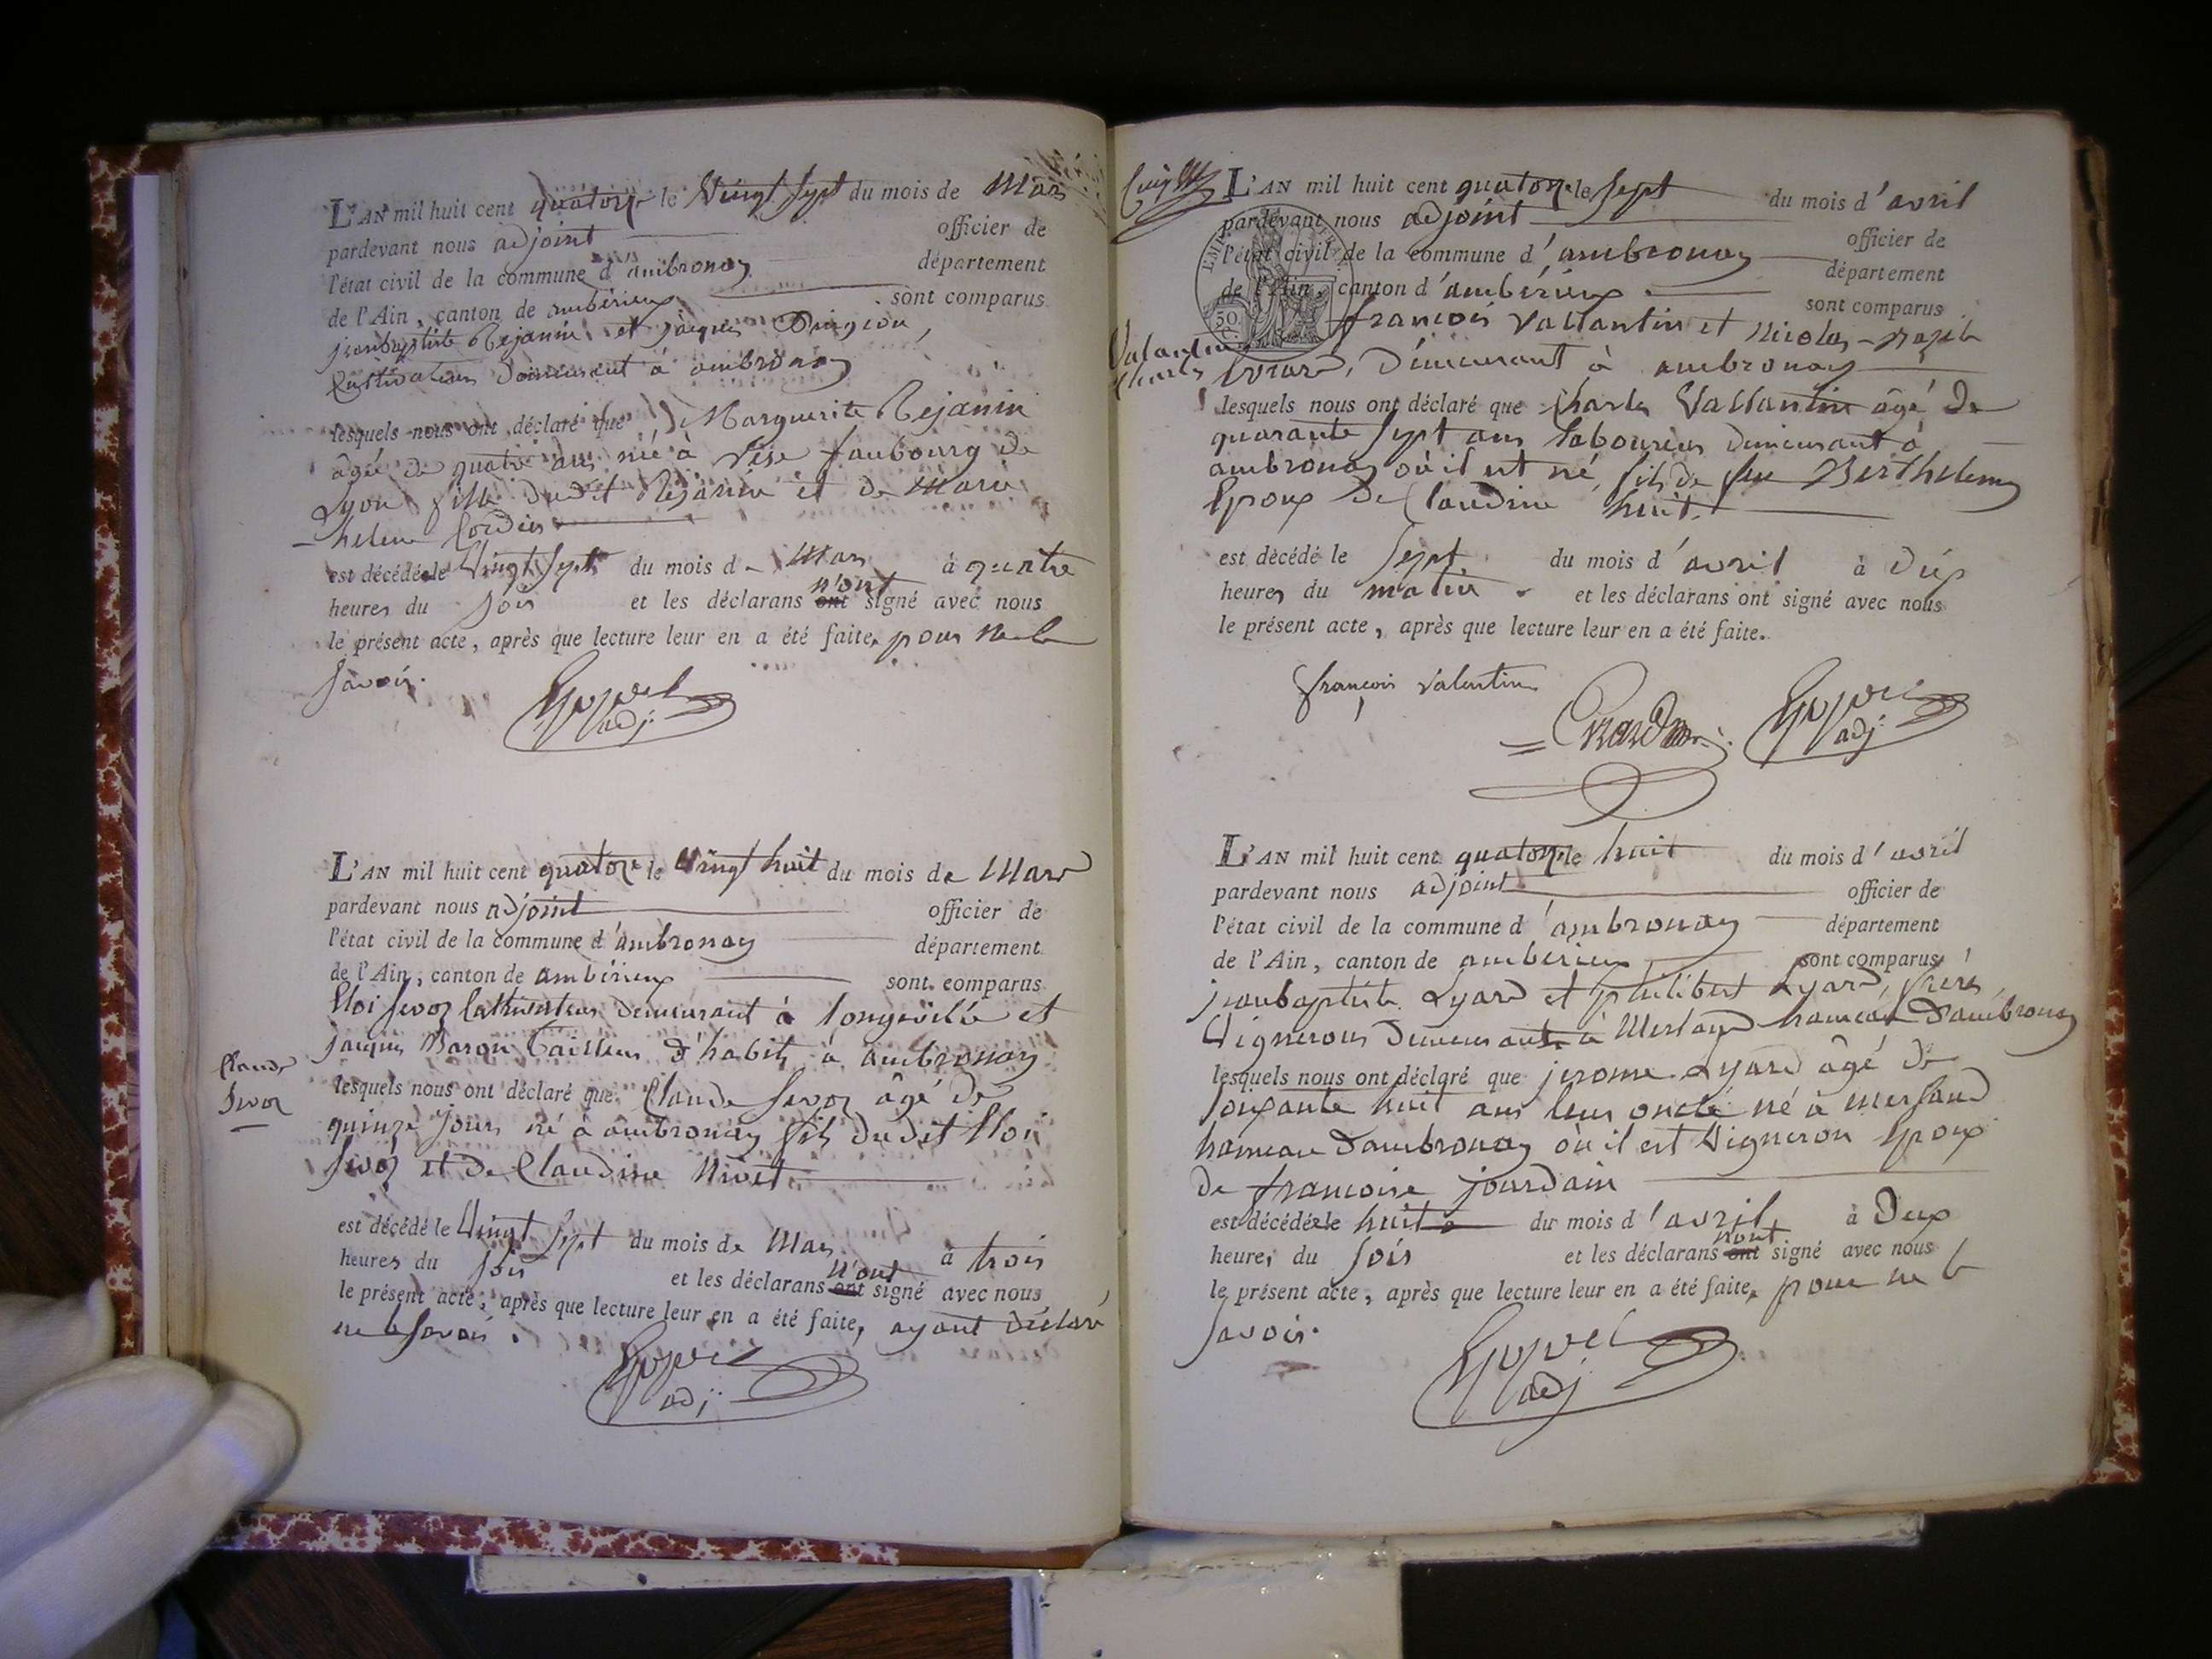 L'AN mil huit cent quatorze le Vingt Sept du mois de Mars
pardevant nous adjoint officier de
l'état civil de la commune d'ambronay département
de l'Ain, canton de ambérieux sont comparus
jeanbaptiste Rejanin et jacques
Cultivateurs demeurant à ambronay
lesquels nous ont déclaré que Marguerite Rejanin
âgée de quatre ans née à Vèse faubourg de
Lyon fille dudit Rejanin et de Marie
helene Cordier
est décédée le Vingt Sept du mois de Mars à quatre
heures du soir et les déclarans n'ont ont signé avec nous
le présent acte, après que lecture leur en a été faite, pour ne le
savoir.
adj.
L'AN mil huit cent quatorze le Vingt huit du mois de Mars
pardevant nous adjoint officier de
l'état civil de la commune d'ambronay département
de l'Ain, canton de ambérieux sont comparus
Eloi Sevoz Cultivateur demeurant à longeville et
jacques Baron tailleur d'habits à ambronay
Claude
Sevoz
lesquels nous ont déclaré que Claude Sevoz âgé de
quinze jours né à ambronay fils dudit Eloi
Sevoz et de Claudine Nivet
est décédé le Vingt Sept du mois de Mars à trois
heures du soir et les déclarans n'ont ont signé avec nous
le présent acte, après que lecture leur en a été faite, ayant déclaré
ne le savoir.
adj.
L'AN mil huit cent quatorze le Sept du mois d'avril
pardevant nous adjoint officier de
l'état civil de la commune d'ambronay département
de l'Ain, canton d'ambérieux sont comparus
50
Valantin
Charles
françois Vallantin et Nicolas
demeurant à ambronay
lesquels nous ont déclaré que Charles Vallantin âgé de
quarante Sept ans laboureur demeurant à
ambronay où il est né, fils de feu Berthelemy
Epoux de Claudine huit.
est décédé le Sept du mois d'avril à Dix
heures du matin et les déclarans ont signé avec nous
le présent acte, après que lecture leur en a été faite.
françois valentin
adj.
L'AN mil huit cent quatorze le huit du mois d'avril
pardevant nous adjoint officier de
l'état civil de la commune d'ambronay département
de l'Ain, canton de ambérieux sont comparus
jeanbaptiste Lyard et philibert Lyard, frères,
Vignerons demeurants à Merland hameau d'ambronay
lesquels nous ont déclaré que jerome Lyard âgé de
soixante huit ans leur oncle né à merland
hameau d'ambronay où il est Vigneron Epoux
de francoise jourdain
est décédé le huit du mois d'avril à Deux
heures du soir et les déclarans n'ont ont signé avec nous
le présent acte, après que lecture leur en a été faite, pour ne le
savoir.
adj